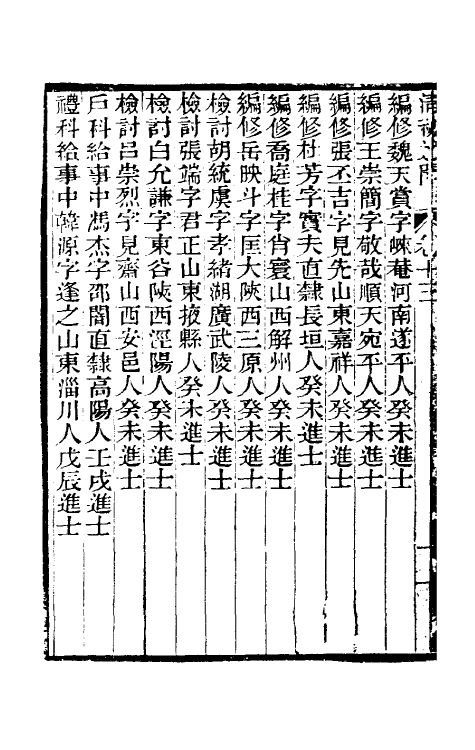 卷十三
編修魏天賞字崍菴河南遂平人癸未進士
編修王崇簡字敬哉順天宛平人癸未進士
編修張丕吉字見先山東嘉祥人癸未進士
編修杜芳字實夫直隸長垣人癸未進士
編修喬庭桂字肖寰山西解州人癸未進士
編修岳映斗字匡大陝西三原人癸未進士
檢討胡統虞字孝緒湖廣武陵人癸未進士
檢討張端字君正山東掖縣人癸未進士
檢討白允謙字東谷陝西涇陽人癸未進士
檢討呂崇烈字見齋山西安邑人癸未進士
戶科給事中馮杰字邵闇直隸高陽人壬戌進士
禮科給事中韓源字逢之山東淄川人戊辰進士